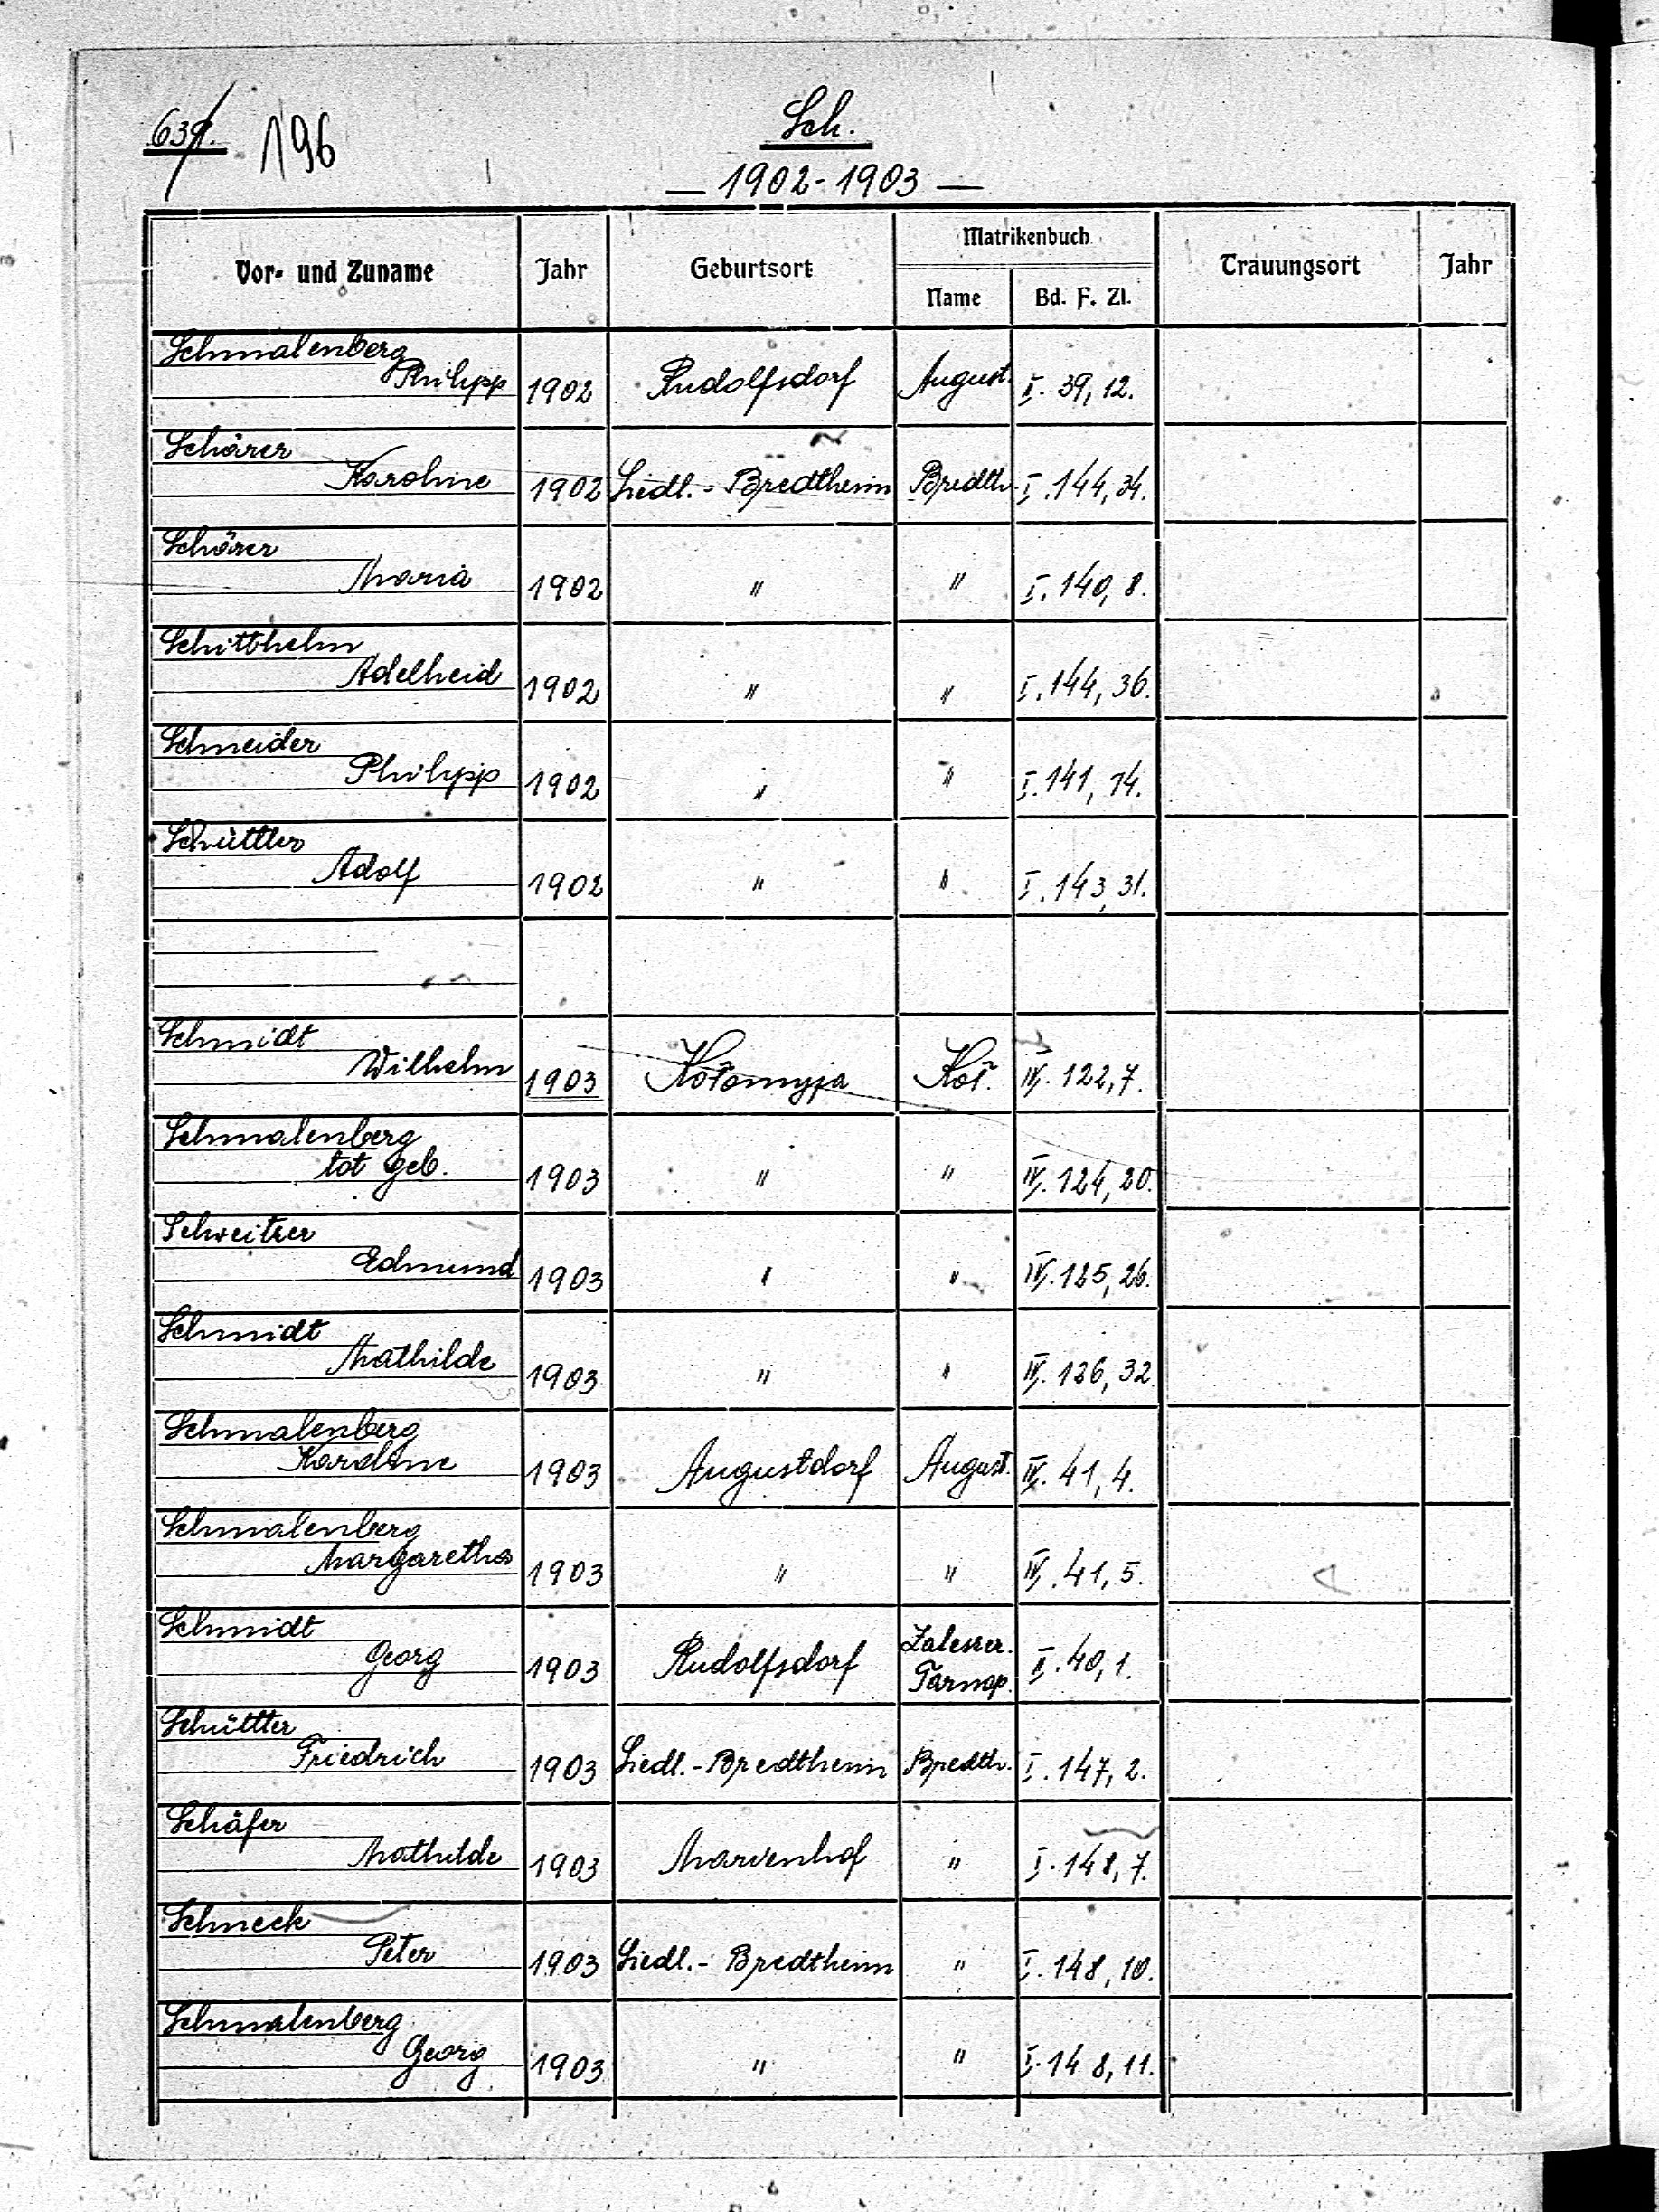 639. 196
Sch.
— 1902-1903 —
Vor- und Zuname Jahr Geburtsort Matrikenbuch Trauungsort Jahr
Name Bd. F. Zl.
Schmalenberg
Philipp 1902 Rudolfsdorf August. II. 39, 12.
Schörer
Karoline 1902 Siedl.- Bredtheim Bredth. I. 144, 34.
Schörer
Maria 1902 " " I. 140, 8.
Schitthelm
Adelheid 1902 " " I. 144, 36.
Schneider
Philipp 1902 " " I. 141, 14.
Schüttler
Adolf 1902 " " I. 143, 31.
Schmidt
Wilhelm 1903 Kołomyja Koł. IV. 122, 7.
Schmalenberg
tot geb. 1903 " " IV. 124, 20.
Schweitzer
Edmund 1903 " " IV. 125, 26.
Schmidt
Mathilde 1903 " " IV. 126, 32.
Schmalenberg
Karoline 1903 Augustdorf August. IV. 41, 4.
Schmalenberg
Margaretha 1903 " " IV. 41, 5.
Schmidt
Georg 1903 Rudolfsdorf Zaleszcz. Tarnop. II. 40, 1.
Schüttler
Friedrich 1903 Siedl.- Bredtheim Bredth. I. 147, 2.
Schäfer
Mathilde 1903 Marienhof " I. 148, 7.
Schneck
Peter 1903 Siedl.- Bredtheim " I. 148, 10.
Schmalenberg
Georg 1903 " " I. 148, 11.